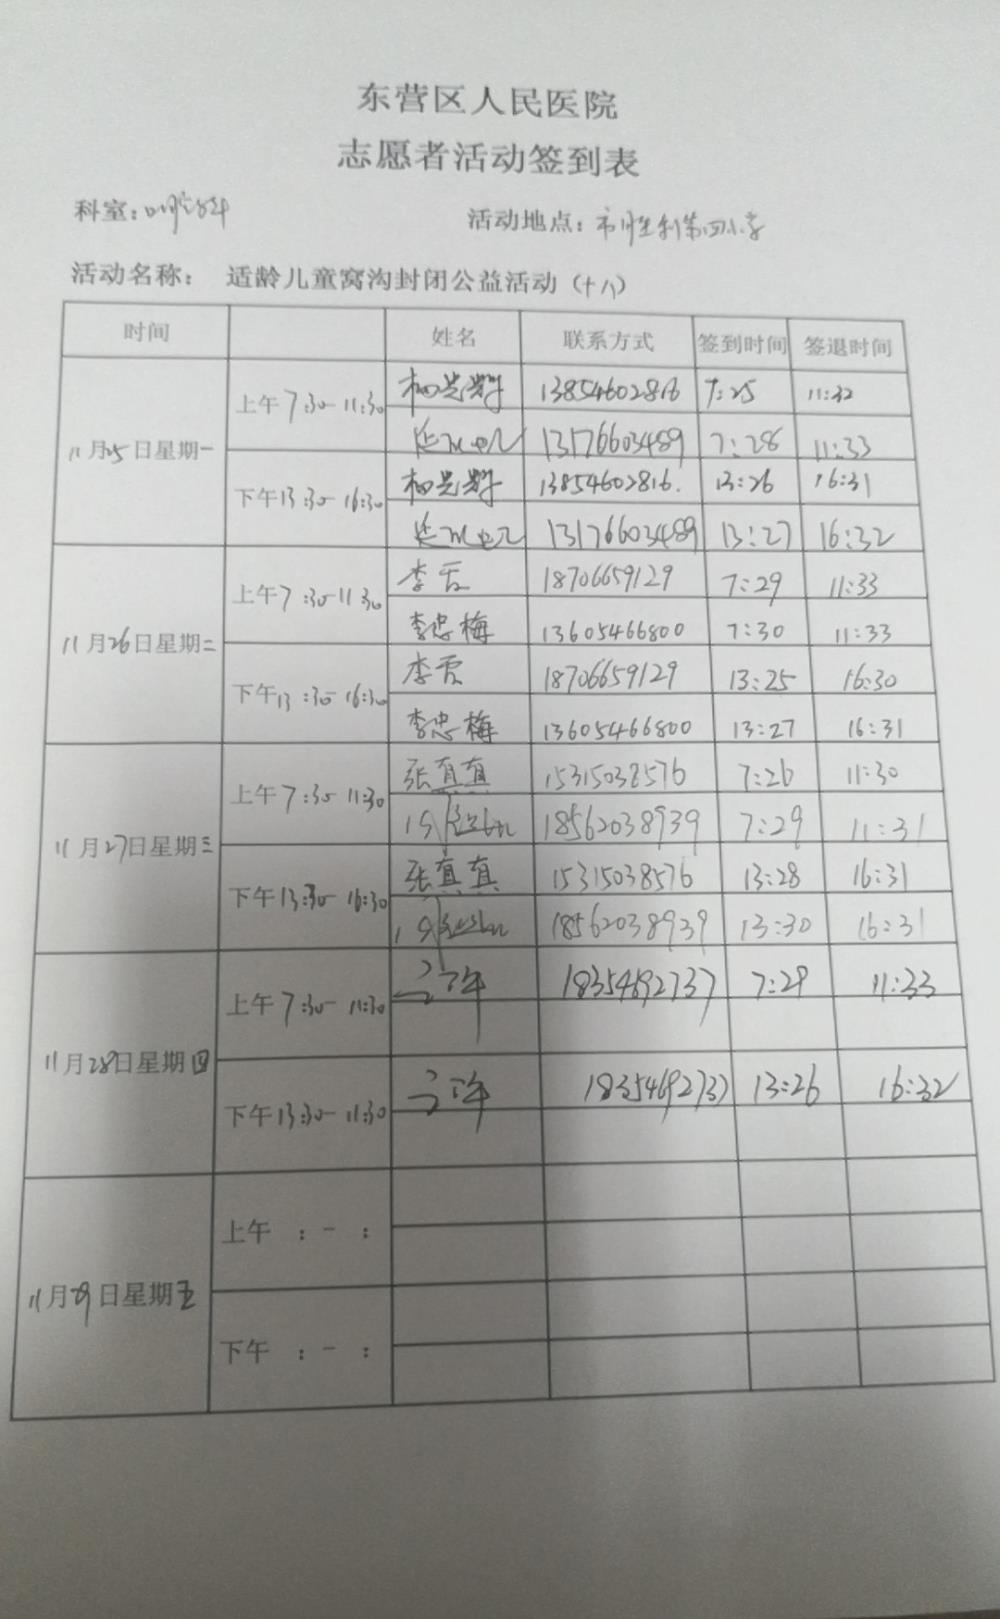 东营区人民医院
志愿者活动签到表
科室：口腔科 活动地点：市胜利第四小学
活动名称： 适龄儿童窝沟封闭公益活动（十八）
时间 姓名 联系方式 签到时间 签退时间
11月25日星期一
上午7:30-11:30
13854602816 7:25 11:32
13176603489 7:28 11:33
下午13:30-16:30
13854602816. 13:26 16:31
13176603489 13:27 16:32
11月26日星期二
上午7:30-11:30
李 18706659129 7:29 11:33
李忠梅 13605466800 7:30 11:33
下午13:30-16:30
李 18706659129 13:25 16:30
李忠梅 13605466800 13:27 16:31
11月27日星期三
上午7:30-11:30
张真真 15315038576 7:26 11:30
18562038939 7:29 11:31
下午13:30-16:30
张真真 15315038576 13:28 16:31
18562038939 13:30 16:31
11月28日星期四
上午7:30-11:30
18354692737 7:29 11:33
下午13:30-11:30
18354692737 13:26 16:32
11月29日星期五
上午 ：- ：
下午 ：- ：